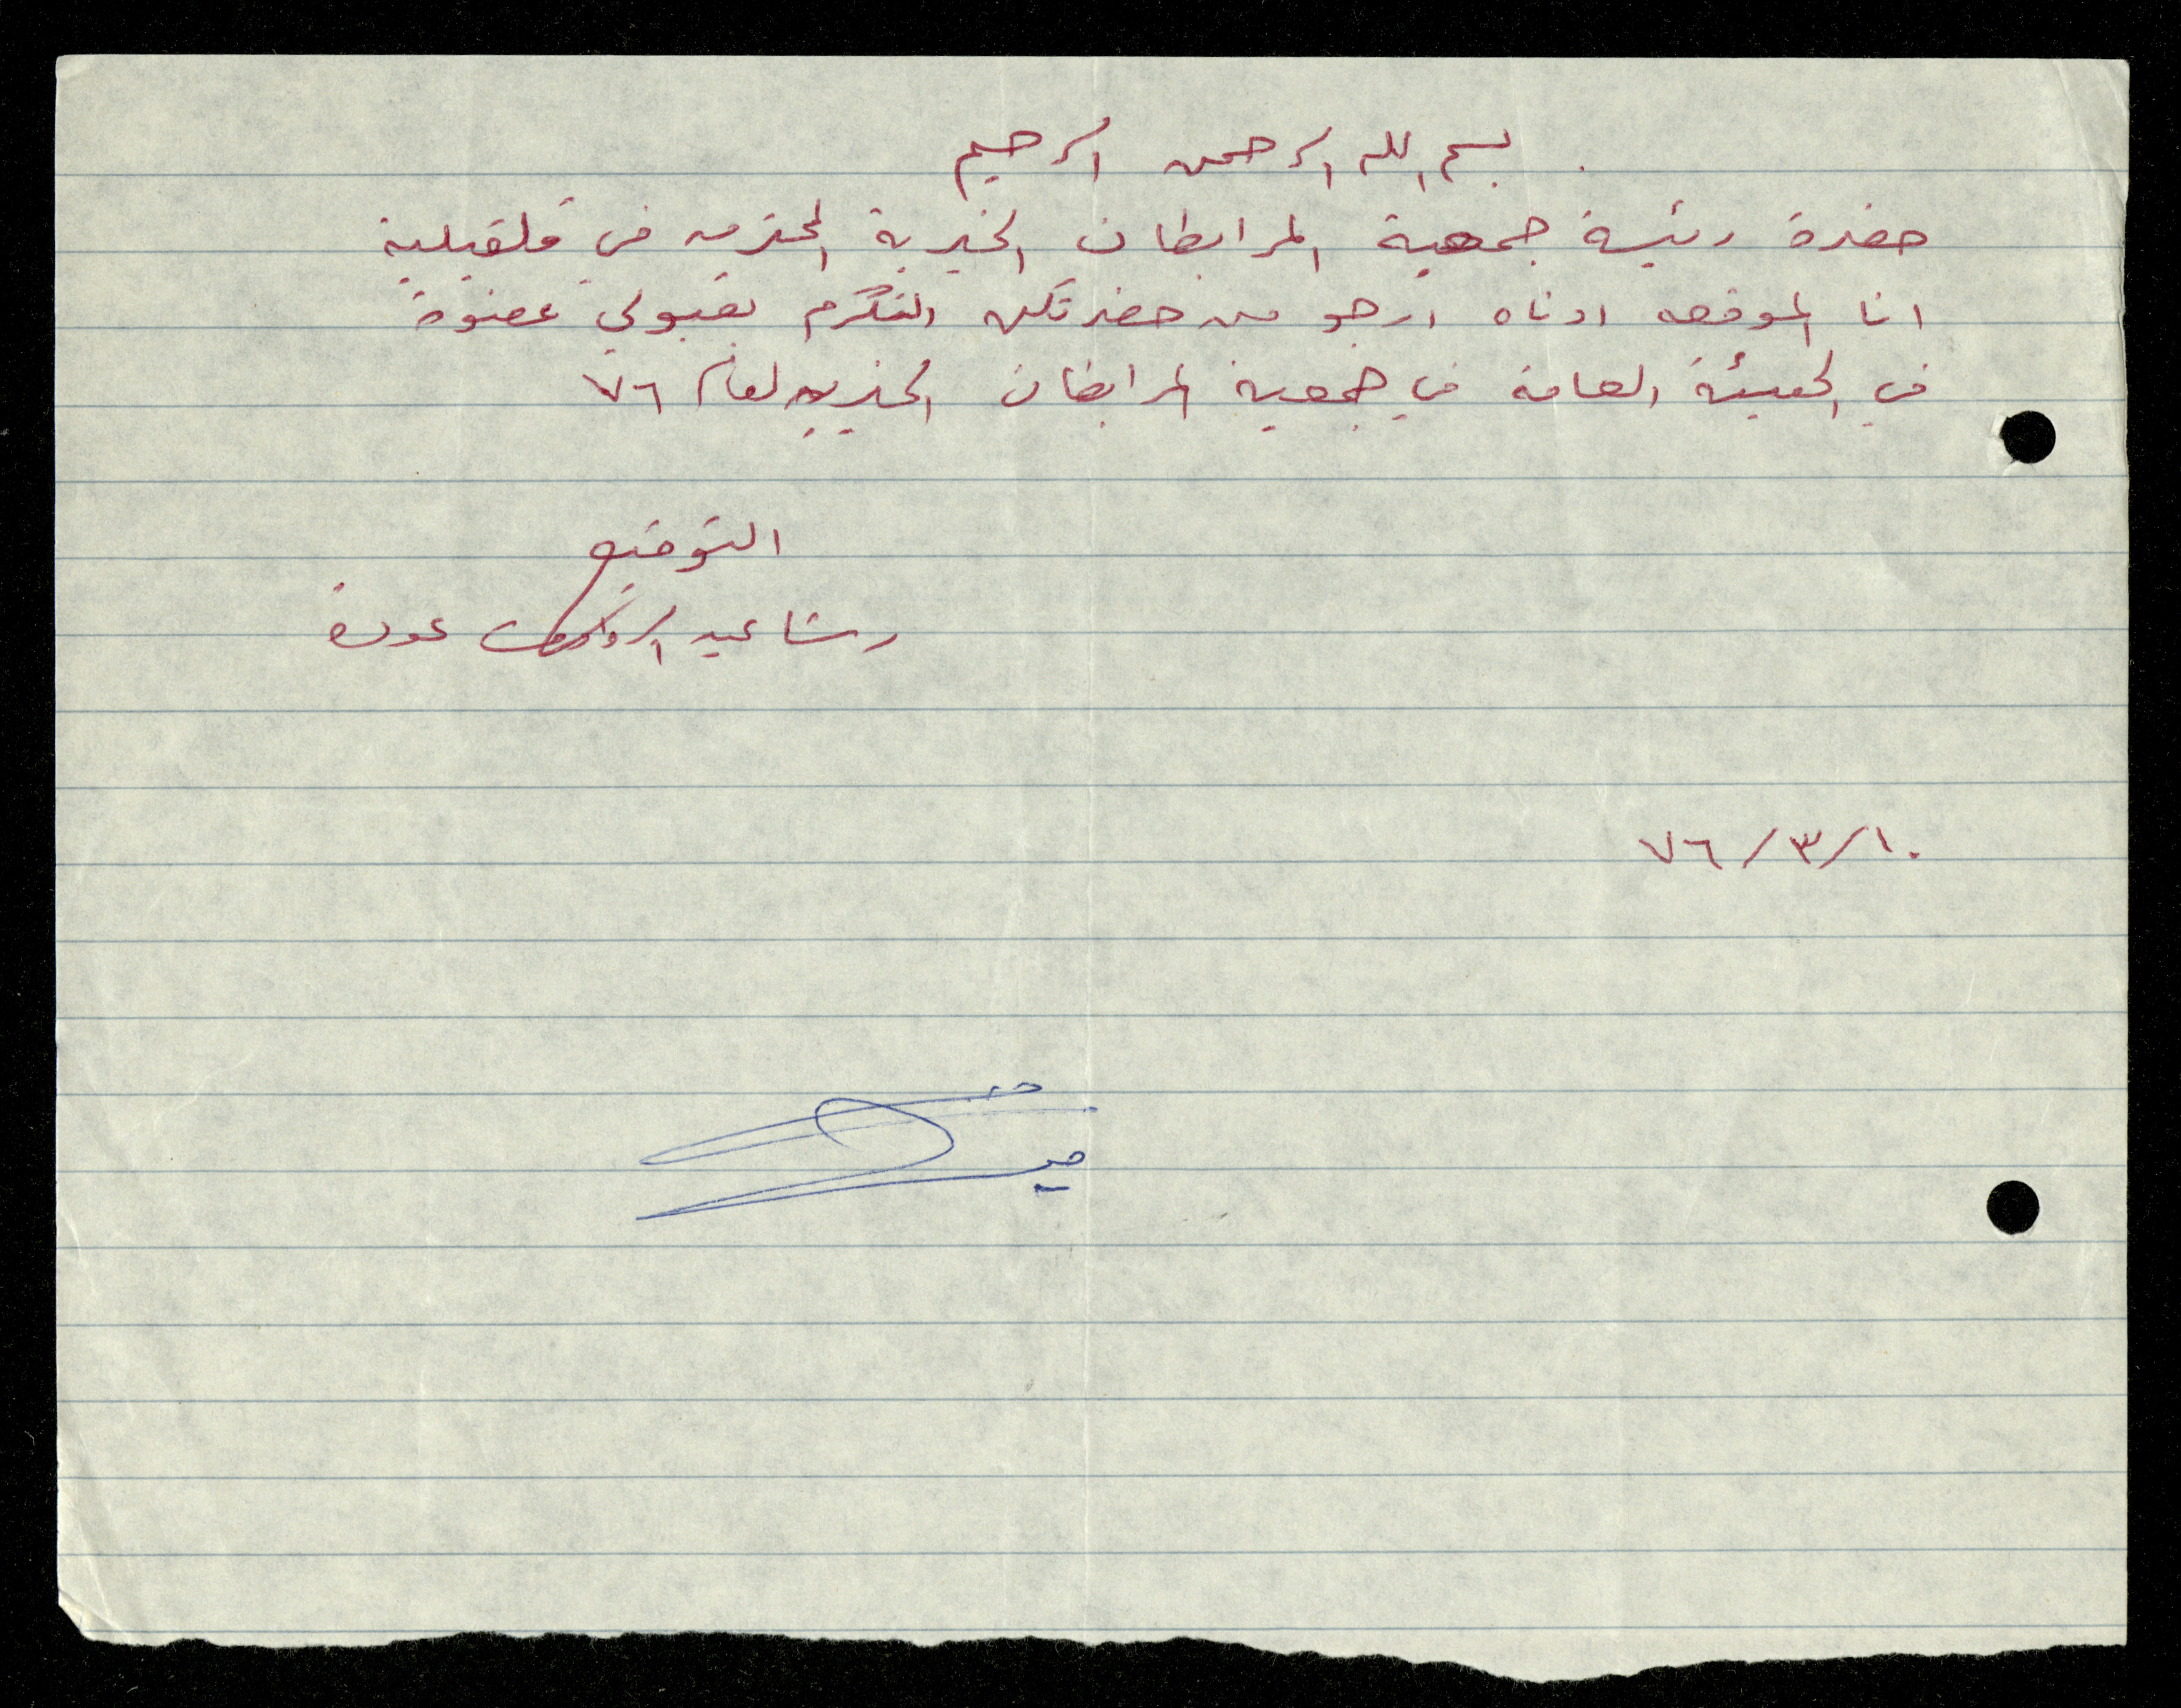 بسم الله الرحمن الرحيم
حضرة رئيسة جمعية المرابطات الخيرية المحترمه في قلقيلية
انا الموقعه ادناه ارجو من حضرتكن التكرم بقبولي عضوة
في الهيئة العامة في جمعية المرابطات الخيريه لعام ٧٦
التوقيع
رشا عبد الرؤوف عودة
١٠/٣/٧٦